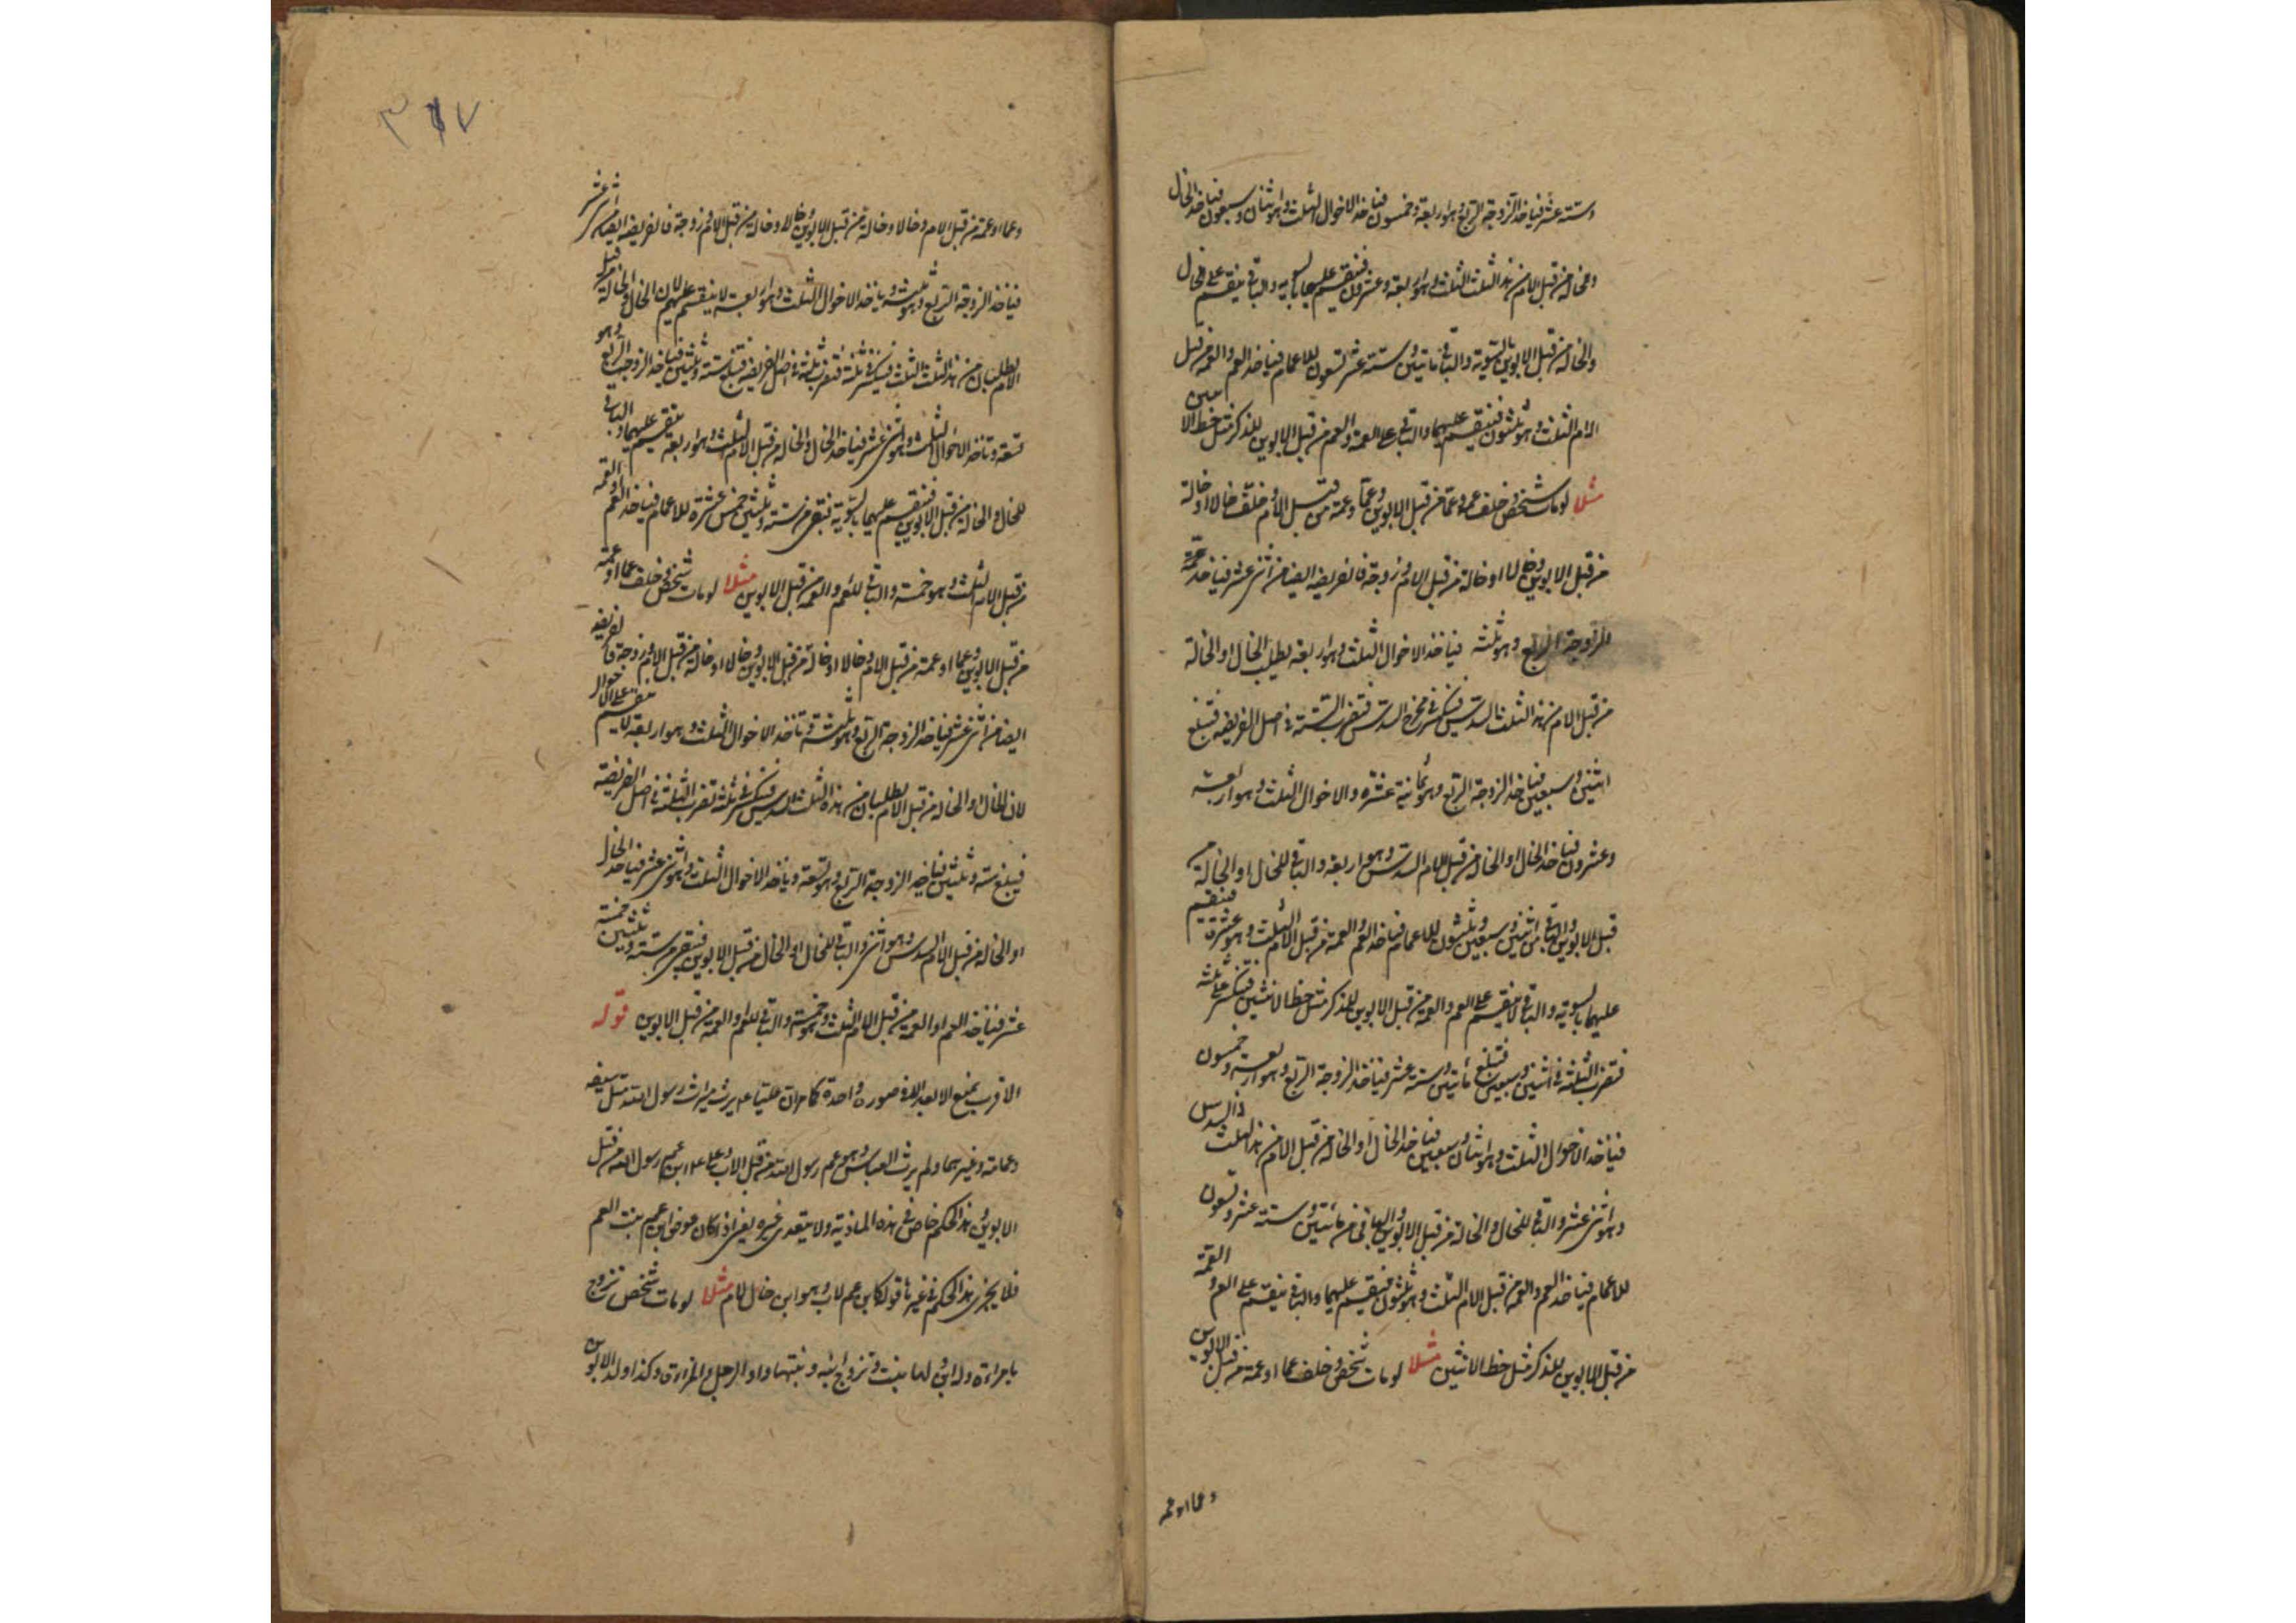 وستة عشر فياخذ الزوجة الربع وهو اربعة وخمسون فياخذ الاخوال الثلث وهو اثنان وسبعون فياخذ الخال
والخالة من قبل الام من هذا الثلث الثلث وهو اربعة وعشرون فتنقسم عليهما بالسوية والباقي ينقسم على الخال
والخالة من قبل الابوين بالسوية والباقي من مأتين وستة عشر تسعون للاعمام فياخذ العم والعمة من قبل
الام الثلث وهو ثلثون فتنقسم عليهما والباقي على العمة والعم من قبل الابوين للذكر مثل حظ الانثيين
مثلا لو مات شخص وخلف عم وعمة من قبل الابوين وعما وعمة من قبل الام وخلف خالا او خالة
من قبل الابوين وخالا او خالة من قبل الام وزوجة فالفريضة ايضا من اثنى عشر فياخذ
للزوجة الربع وهو ثلثة فياخذ الاخوال الثلث وهو اربعة يطلب الخال او الخالة
من قبل الام من هذا الثلث السدس فتنكسر في مخرج السدس فتضرب الستة في اصل الفريضة فتبلغ
اثنين وسبعين فياخذ الزوجة الربع وهو ثمانية عشرة والاخوال الثلث وهو اربعة
وعشرون فياخذ الخال او الخالة من قبل الام السدس وهو اربعة والباقي للخال او الخالة من
قبل الابوين والباقي من اثنين وسبعين وثلثون للاعمام فياخذ العم والعمة من قبل الام الثلث وهو عشرة فتنقسم
عليهما بالسوية والباقي لا ينقسم على العم والعمة من قبل الابوين للذكر مثل حظ الانثيين فتنكسر على ثلثة
فتضرب الثلثة في اثنين وسبعين فتبلغ مأتين وستة عشر فياخذ الزوجة الربع وهو اربعة وخمسون
فياخذ الاخوال الثلث وهو اثنان وسبعين فياخذ الخال او الخالة من قبل الام من هذا الثلث السدس
وهو اثنى عشر والباقي للخال والخالة من قبل الابوين والباقي من مأتين وستة عشر وتسعون
للاعمام فياخذ العم والعمة من قبل الام الثلث وهو ثلثون فتنقسم عليهما والباقي ينقسم على العم والعمة
من قبل الابوين للذكر مثل حظ الانثيين مثلا لو مات شخص وخلف عما او عمة من قبل الابوين
وعما او عمة
٣١٧
وعما او عمة من قبل الام وخالا وخالة من قبل الابوين وخالا وخالة من قبل الام وزوجة فالفريضة ايضا من اثنى عشر
فياخذ الزوجة الربع وهو ثلثة وياخذ الاخوال الثلث وهو اربعة لا ينقسم عليهم لان الخال والخالة من قبل
الام يطلبان من هذا الثلث الثلث فينكسر في ثلثة فتضرب ثلثة في اصل الفريضة فتبلغ ستة وثلثين فياخذ الزوجة الربع وهو
تسعة وتاخذ الاخوال الثلث وهو اثنى عشر فياخذ الخال والخالة من قبل الام الثلث وهو اربعة ينقسم عليهما والباقي
للخال والخالة من قبل الابوين فتنقسم عليهما بالسوية فتبقى من ستة وثلثين خمس عشرة للاعمام فياخذ العم او العمة
من قبل الام الثلث وهو خمسة والباقي للعم والعمة من قبل الابوين مثلا لو مات شخص وخلف عما او عمة
من قبل الابوين وعما او عمة من قبل الام وخالا او خالة من قبل الابوين وخالا او خالة من قبل الام وزوجة فالفريضة
ايضا من اثنى عشر فياخذ الزوجة الربع وهو ثلثة وتاخذ الاخوال الثلث وهو اربعة لا ينقسم على الاخوال
لان الخال او الخالة من قبل الام يطلبان من هذه الثلث السدس فتنكسر في ثلثة تضرب الثلثة في اصل الفريضة
فيبلغ ستة وثلثين فياخذ الزوجة الربع وهو تسعة وياخذ الاخوال الثلث وهو اثنى عشر فياخذ الخال
او الخالة من قبل الام السدس وهو اثنى والباقي للخال او الخال من قبل الابوين فتبقى من ستة وثلثين خمسة
عشر فياخذ العم او العمة من قبل الام الثلث وهو خمسة والباقي للعم او العمة من قبل الابوين قوله
الاقرب يمنع الابعد الا في صورة واحدة كما ان عليا ع يرث ميراث رسول الله مثل سيفه
وعمامته وغيرهما ولم يرث العباس وهو عم رسول الله من قبل الاب وعلي ع ابن عم رسول الله من قبل
الابوين وهذا الحكم خاص في هذه المادة ولا يتعدى غيره يعنى اذا كان عوض ابن عم بنت العم
فلا يجرى هذا الحكم في غيرها قوله كابن عم لاب وهو ابن خال لام مثلا لو مات شخص تزوج
بامراة وله ابن ولها بنت وتزوج ابنه وبنتها واو الرجل والمراة وكذا ولد الابوين